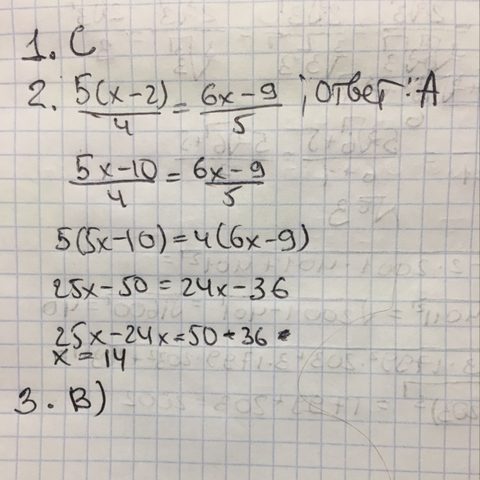 1. C
2. 5(x-2)/4 = 6x-9/5 ; ответ: A
5x-10/4 = 6x-9/5
5(5x-10)=4(6x-9)
25x-50=24x-36
25x-24x=50-36
x=14
3. B)